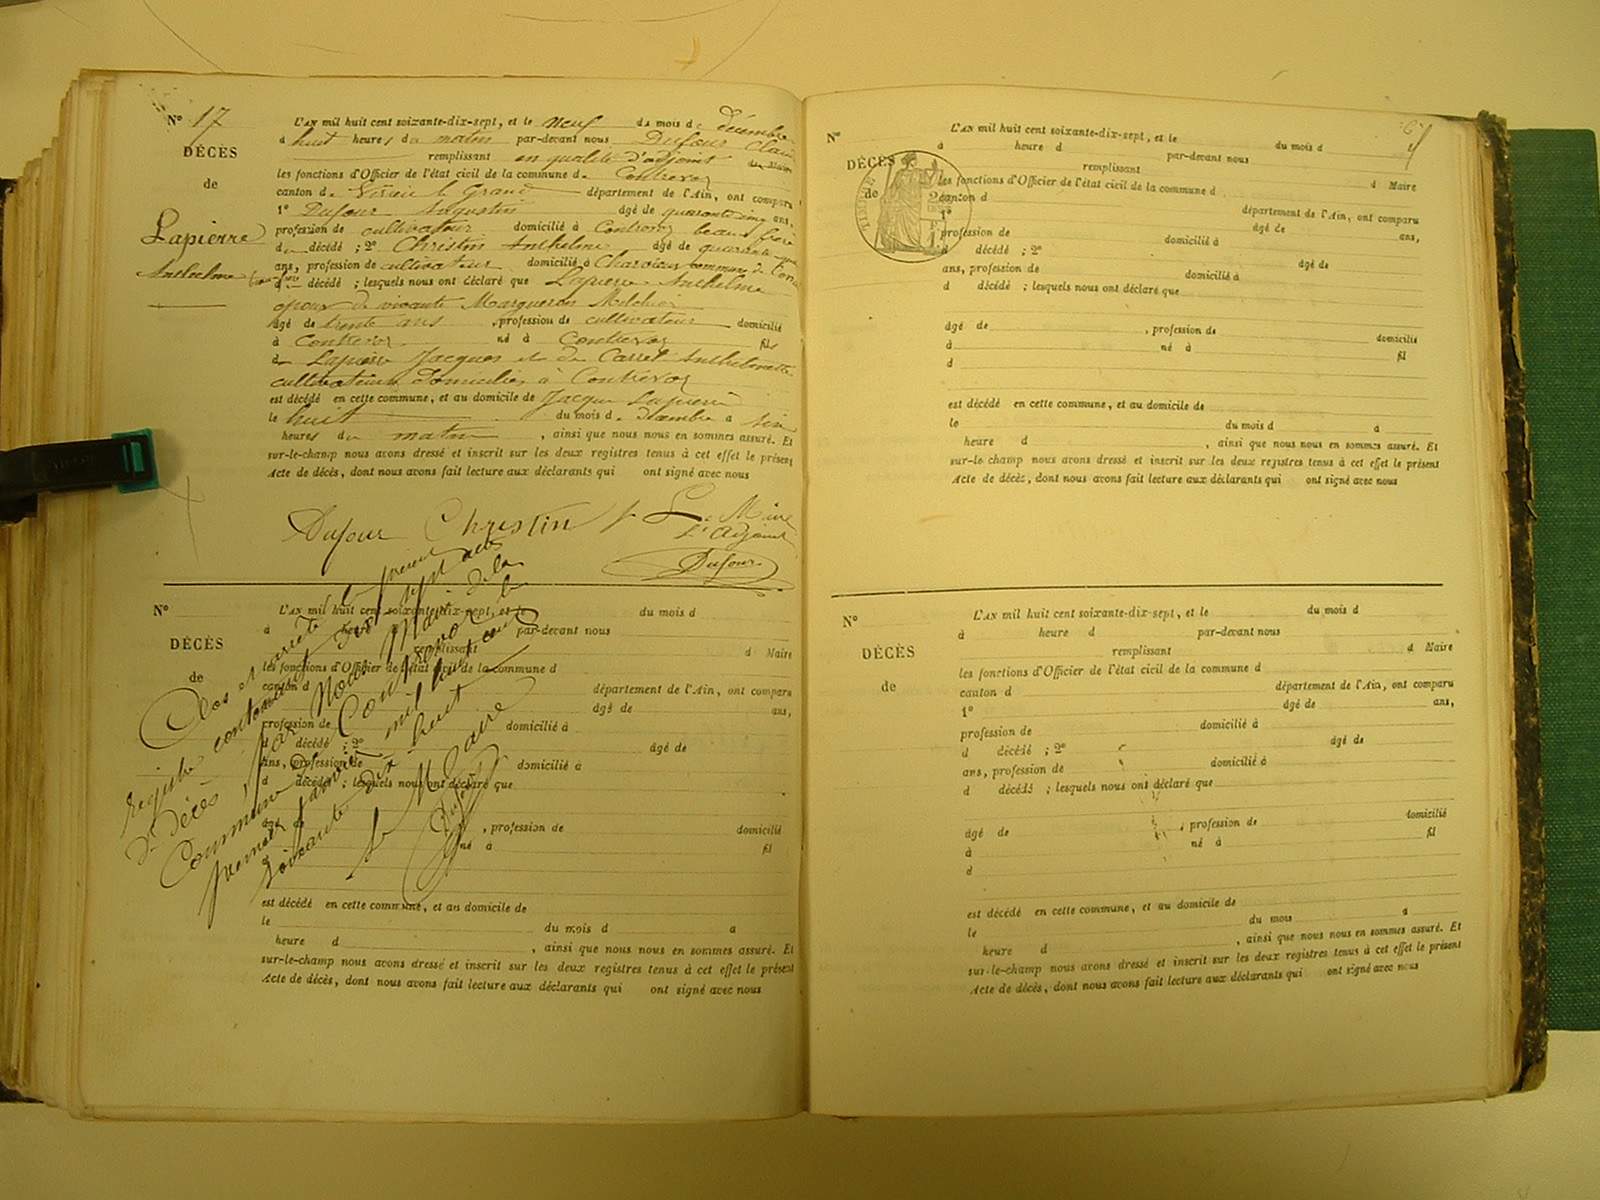 N° 17
DÉCÈS
de
Lapierre
Anthelme
L'AN mil huit cent soixante-dix-sept, et le neuf du mois de décembre
à huit heures du matin par-devant nous Dufour Claude
remplissant en qualité d'adjoint
les fonctions d'Officier de l'état civil de la commune de Contrevoz
canton de Virieu le Grand département de l'Ain, ont comparu
1° Dufour Augustin âgé de quarante cinq ans,
profession de cultivateur domicilié à Contrevoz beau frère
du décédé ; 2° Christin Anthelme âgé de quarante
ans, profession de cultivateur domicilié à Charvieux commune de
du décédé ; lesquels nous ont déclaré que Lapierre Anthelme
époux de vivante Margueron Melchior
âgé de trente ans, profession de cultivateur domicilié
à Contrevoz né à Contrevoz fils
de Lapierre Jacques et de Carrel Anthelmette
cultivateurs domiciliés à Contrevoz
est décédé en cette commune, et au domicile de Jacques Lapierre
le huit du mois de décembre à six
heures du matin, ainsi que nous nous en sommes assuré. Et
sur-le-champ nous avons dressé et inscrit sur les deux registres tenus à cet effet le présent
Acte de décès, dont nous avons fait lecture aux déclarants qui ont signé avec nous
Dufour Christin p. Le Maire
L'Adjoint
Dufour
N°
DÉCÈS
de
L'AN mil huit cent soixante-dix-sept, et le du mois d
à heure d par-devant nous
remplissant d Maire
les fonctions d'Officier de l'état civil de la commune d
canton d département de l'Ain, ont comparu
âgé de ans,
profession de domicilié à
d décédé ; 2° âgé de
ans, profession de domicilié à
d décédé ; lesquels nous ont déclaré que
âgé de , profession de domicilié
né à fil
est décédé en cette commune, et au domicile de
le du mois d à
heure d , ainsi que nous nous en sommes assuré. Et
sur-le-champ nous avons dressé et inscrit sur les deux registres tenus à cet effet le présent
Acte de décès, dont nous avons fait lecture aux déclarants qui ont signé avec nous
Clos et arrêté le présent
registre contenant dix sept actes
de décès par Nous Maire de la
Commune de Contrevoz le
premier janvier mil huit cent
soixante dix huit
Le Maire
Dufour
N°
DÉCÈS
de
L'AN mil huit cent soixante-dix-sept, et le du mois d
à heure d par-devant nous
remplissant d Maire
les fonctions d'Officier de l'état civil de la commune d
canton d département de l'Ain, ont comparu
1° âgé de ans,
profession de domicilié à
d décédé ; 2° âgé de
ans, profession de domicilié à
d décédé ; lesquels nous ont déclaré que
âgé de , profession de domicilié
à né à fil
d
est décédé en cette commune, et au domicile de
le du mois d à
heure d , ainsi que nous nous en sommes assuré. Et
sur-le-champ nous avons dressé et inscrit sur les deux registres tenus à cet effet le présent
Acte de décès, dont nous avons fait lecture aux déclarants qui ont signé avec nous
N°
DÉCÈS
de
L'AN mil huit cent soixante-dix-sept, et le du mois d
à heure d par-devant nous
remplissant d Maire
les fonctions d'Officier de l'état civil de la commune d
canton d département de l'Ain, ont comparu
1° âgé de ans,
profession de domicilié à
d décédé ; 2° âgé de
ans, profession de domicilié à
d décédé ; lesquels nous ont déclaré que
âgé de , profession de domicilié
à né à fil
d
est décédé en cette commune, et au domicile de
le du mois à
heure d , ainsi que nous nous en sommes assuré. Et
sur-le-champ nous avons dressé et inscrit sur les deux registres tenus à cet effet le présent
Acte de décès, dont nous avons fait lecture aux déclarants qui ont signé avec nous